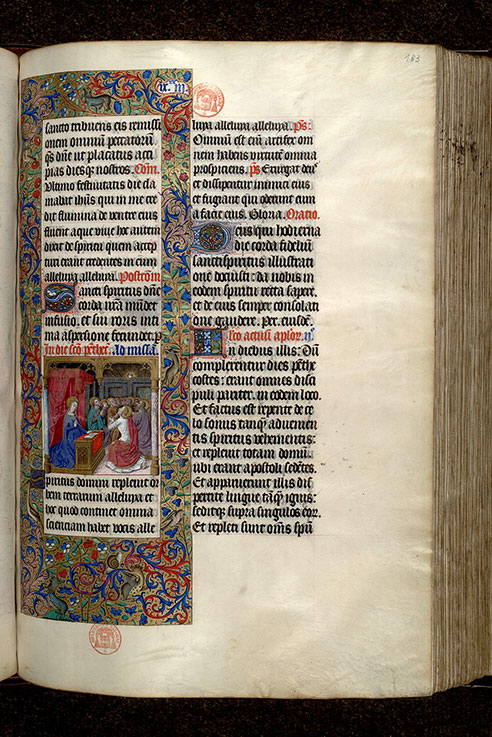 183
ix. m
sancto tribuens eis remissi
onem omnium peccatorum
qs dne ut placatus acci
pias diesq nostros. Com.
Ultimo festivitatis die cla
mabat ihus qui in me cre
dit flumina de ventre eius
fluent aque vive hoc autem
dixit de spiritu quem accep
turi erant credentes in eum
alleluya alleluya. Postcom
Sancti spiritus dne
corda nra mundet
infusio. et sui roris inti
ma aspersione fecundet. p
In die sco penthec. ad missa.
Spiritus domini replevit or
bem terrarum alleluya et
hoc quod continet omnia
scientiam habet vocis alle
luya alleluya alleluya. ps:
Omnium est eni artifex om
nem habens virtute omnia
prospiciens. ps Exurgat deus
et dissipentur inimici eius
et fugiant qui oderunt eum
a facie eius. Gloria. Oratio.
Deus qui hodierna
die corda fidelium
sancti spiritus illustrati
one docuisti: da nobis in
eodem spiritu recta sapere.
et de eius semper consolati
one gaudere. per. eiusde.
Lectio actuum aplor.
In diebus illis: Cum
complerentur dies penthe
costes: erant omnes disci
puli pariter in eodem loco.
Et factus est repente de ce
lo sonus tanq advenien
tis spiritus vehementis:
et replevit totam domum
ubi erant apostoli sedetes.
Et apparuerunt illis dis
pertite lingue taq ignis:
seditq supra singulos eor.
Et repleti sunt oms spu